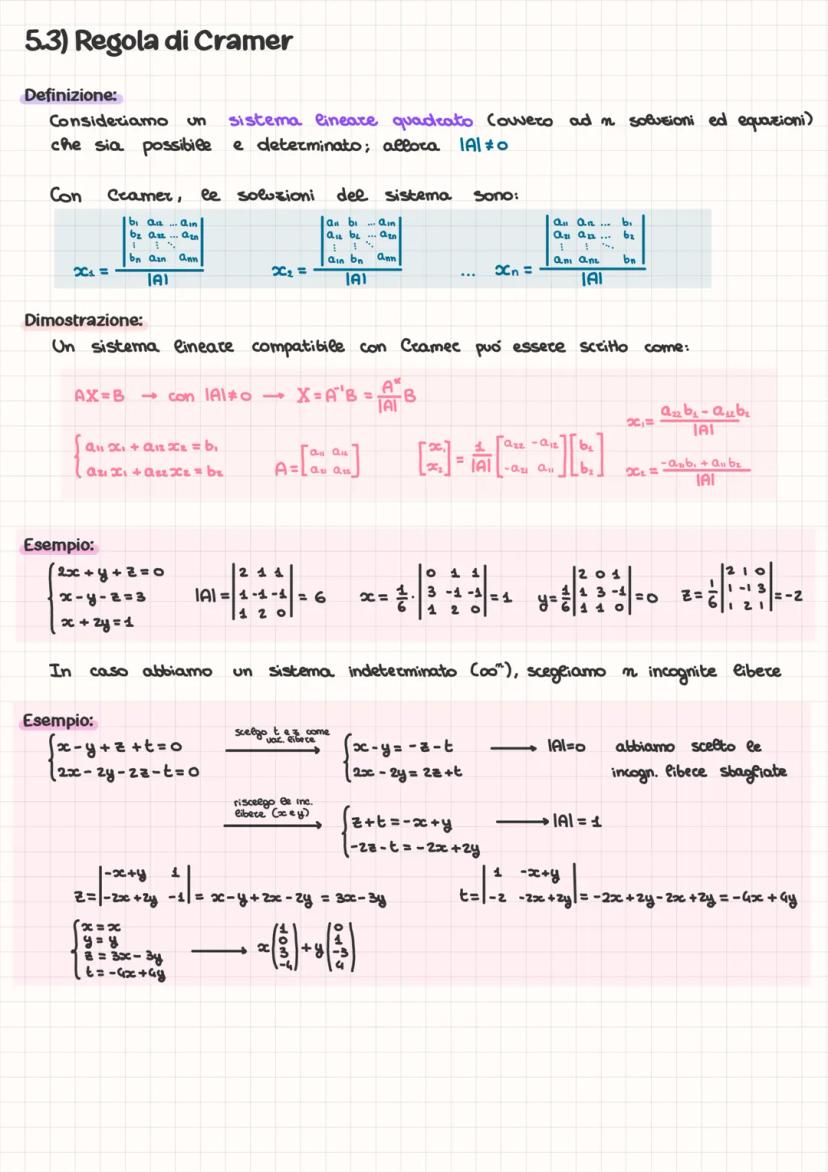 5.3) Regola di Cramer
Definizione:
Consideriamo un sistema lineare quadrato (ovvero ad n soluzioni ed equazioni)
che sia possibile e determinato; allora |A|≠0
Con Cramer, le soluzioni del sistema sono:
x₁ = |b₁ a₁₂ ... a₁n; b₂ a₂₂ ... a₂n; ⋮ ⋮ ⋱; bn a₂n ann| / |A|   x₂ = |a₁₁ b₁ ... a₁n; a₁₂ b₂ ... a₂n; ⋮ ⋮ ⋱; a₁n bn ann| / |A|   ...   xn = |a₁₁ a₁₂ ... b₁; a₂₁ a₂₂ ... b₂; ⋮ ⋮ ⋱; an₁ an₂ bn| / |A|
Dimostrazione:
Un sistema lineare compatibile con Cramer puó essere scritto come:
AX=B → con |A|≠0 → X=A⁻¹B = A*/|A| B
{a₁₁x₁ + a₁₂x₂ = b₁; a₂₁x₁ + a₂₂x₂ = b₂   A = [a₁₁ a₁₂; a₂₁ a₂₂]   [x₁; x₂] = 1/|A| [a₂₂ -a₁₂; -a₂₁ a₁₁][b₁; b₂]   x₁ = a₂₂b₁ - a₁₂b₂ / |A|   x₂ = -a₂₁b₁ + a₁₁b₂ / |A|
Esempio:
{2x+y+z=0; x-y-z=3; x+2y=1   |A| = |2 1 1; 1 -1 -1; 1 2 0| = 6   x = 1/6 · |0 1 1; 3 -1 -1; 1 2 0| = 1   y = 1/6 |2 0 1; 1 3 -1; 1 1 0| = 0   z = 1/6 |2 1 0; 1 -1 3; 1 2 1| = -2
In caso abbiamo un sistema indeterminato (∞ⁿ), scegliamo n incognite libere
Esempio:
{x-y+z+t=0; 2x-2y-2z-t=0   scelgo t e z come var. libere →   {x-y=-z-t; 2x-2y=2z+t   → |A|=0   abbiamo scelto le incogn. libere sbagliate
riscelgo le inc. libere (x e y) →   {z+t=-x+y; -2z-t=-2x+2y   → |A|=1
z = |-x+y 1; -2x+2y -1| = x-y+2x-2y = 3x-3y   t = |1 -x+y; -2 -2x+2y| = -2x+2y-2x+2y = -4x+4y
{x=x; y=y; z=3x-3y; t=-4x+4y   → x(1; 0; 3; -4) + y(0; 1; -3; 4)